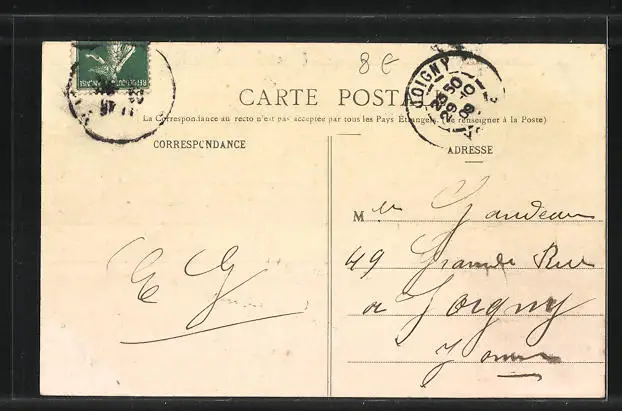 8 €
CARTE POSTA
La Correspondance au recto n'est pas acceptée par tous les Pays Étrangers. (Se renseigner à la Poste)
CORRESPONDANCE
ADRESSE
JOIGNY
23 50
29 -10
09
M lle Gandeau
49 Grande Rue
a Joigny
Yonne
E G